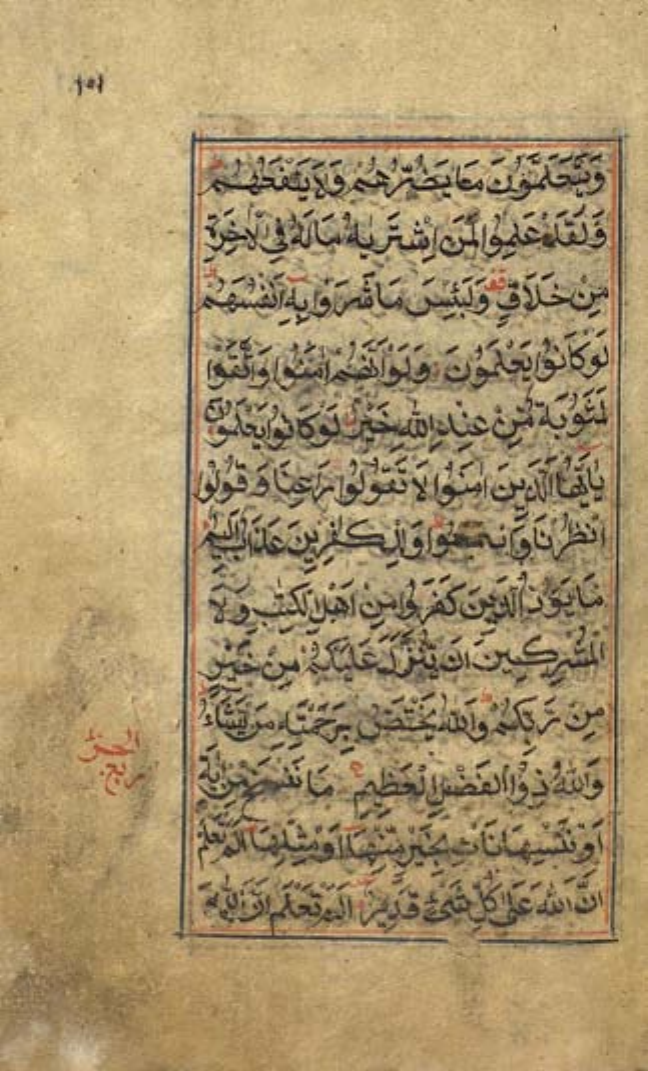 ١٥١
وَيَتَعَلَّمُونَ مَا يَضُرُّهُمْ وَلَا يَنْفَعُهُمْ
وَلَقَدْ عَلِمُوا لَمَنِ اشْتَرَىهُ مَا لَهُ فِي الْآخِرَةِ
مِنْ خَلَاقٍ وَلَبِئْسَ مَا شَرَوْا بِهِ أَنْفُسَهُمْ
لَوْ كَانُوا يَعْلَمُونَ وَلَوْ أَنَّهُمْ اٰمَنُوا وَاتَّقَوْا
لَمَثُوبَةٌ مِنْ عِنْدِ اللهِ خَيْرٌ لَوْ كَانُوا يَعْلَمُونَ
يٰاَيُّهَا الَّذِينَ اٰمَنُوا لَا تَقُولُوا رَاعِنَا وَقُولُوا
انْظُرْنَا وَاسْمَعُوا وَلِلْكٰفِرِينَ عَذَابٌ أَلِيمٌ
مَا يَوَدُّ الَّذِينَ كَفَرُوا مِنْ اَهْلِ الْكِتٰبِ وَلَا
الْمُشْرِكِينَ اَنْ يُنَزَّلَ عَلَيْكُمْ مِنْ خَيْرٍ
مِنْ رَبِّكُمْ وَاللهُ يَخْتَصُّ بِرَحْمَتِهِ مَنْ يَشَاءُ
وَاللهُ ذُو الْفَضْلِ الْعَظِيمِ مَا نَنْسَخْ مِنْ اٰيَةٍ
اَوْ نُنْسِهَا نَاْتِ بِخَيْرٍ مِنْهَا اَوْ مِثْلِهَا اَلَمْ تَعْلَمْ
اَنَّ اللهَ عَلَىٰ كُلِّ شَيْءٍ قَدِيرٌ اَلَمْ تَعْلَمْ اَنَّ اللهَ لَهُ
ربع الحزب